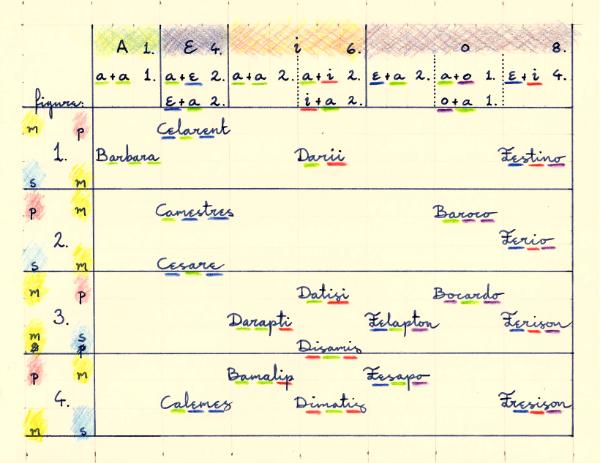 A 1. Ɛ 4. i 6. o 8.
a+a 1. a+ɛ 2. a+a 2. a+i 2. ɛ+a 2. a+o 1. ɛ+i 4.
ɛ+a 2. i+a 2. o+a 1.
figure:
m p Celarent
1. Barbara Darii Festino
s m
p m Camestres Baroco
2. Ferio
s m Cesare
m p Datisi Bocardo
3. Darapti Felapton Ferison
m s Disamis
p m Bamalip Fesapo
4. Calemes Dimatis Fresison
m s